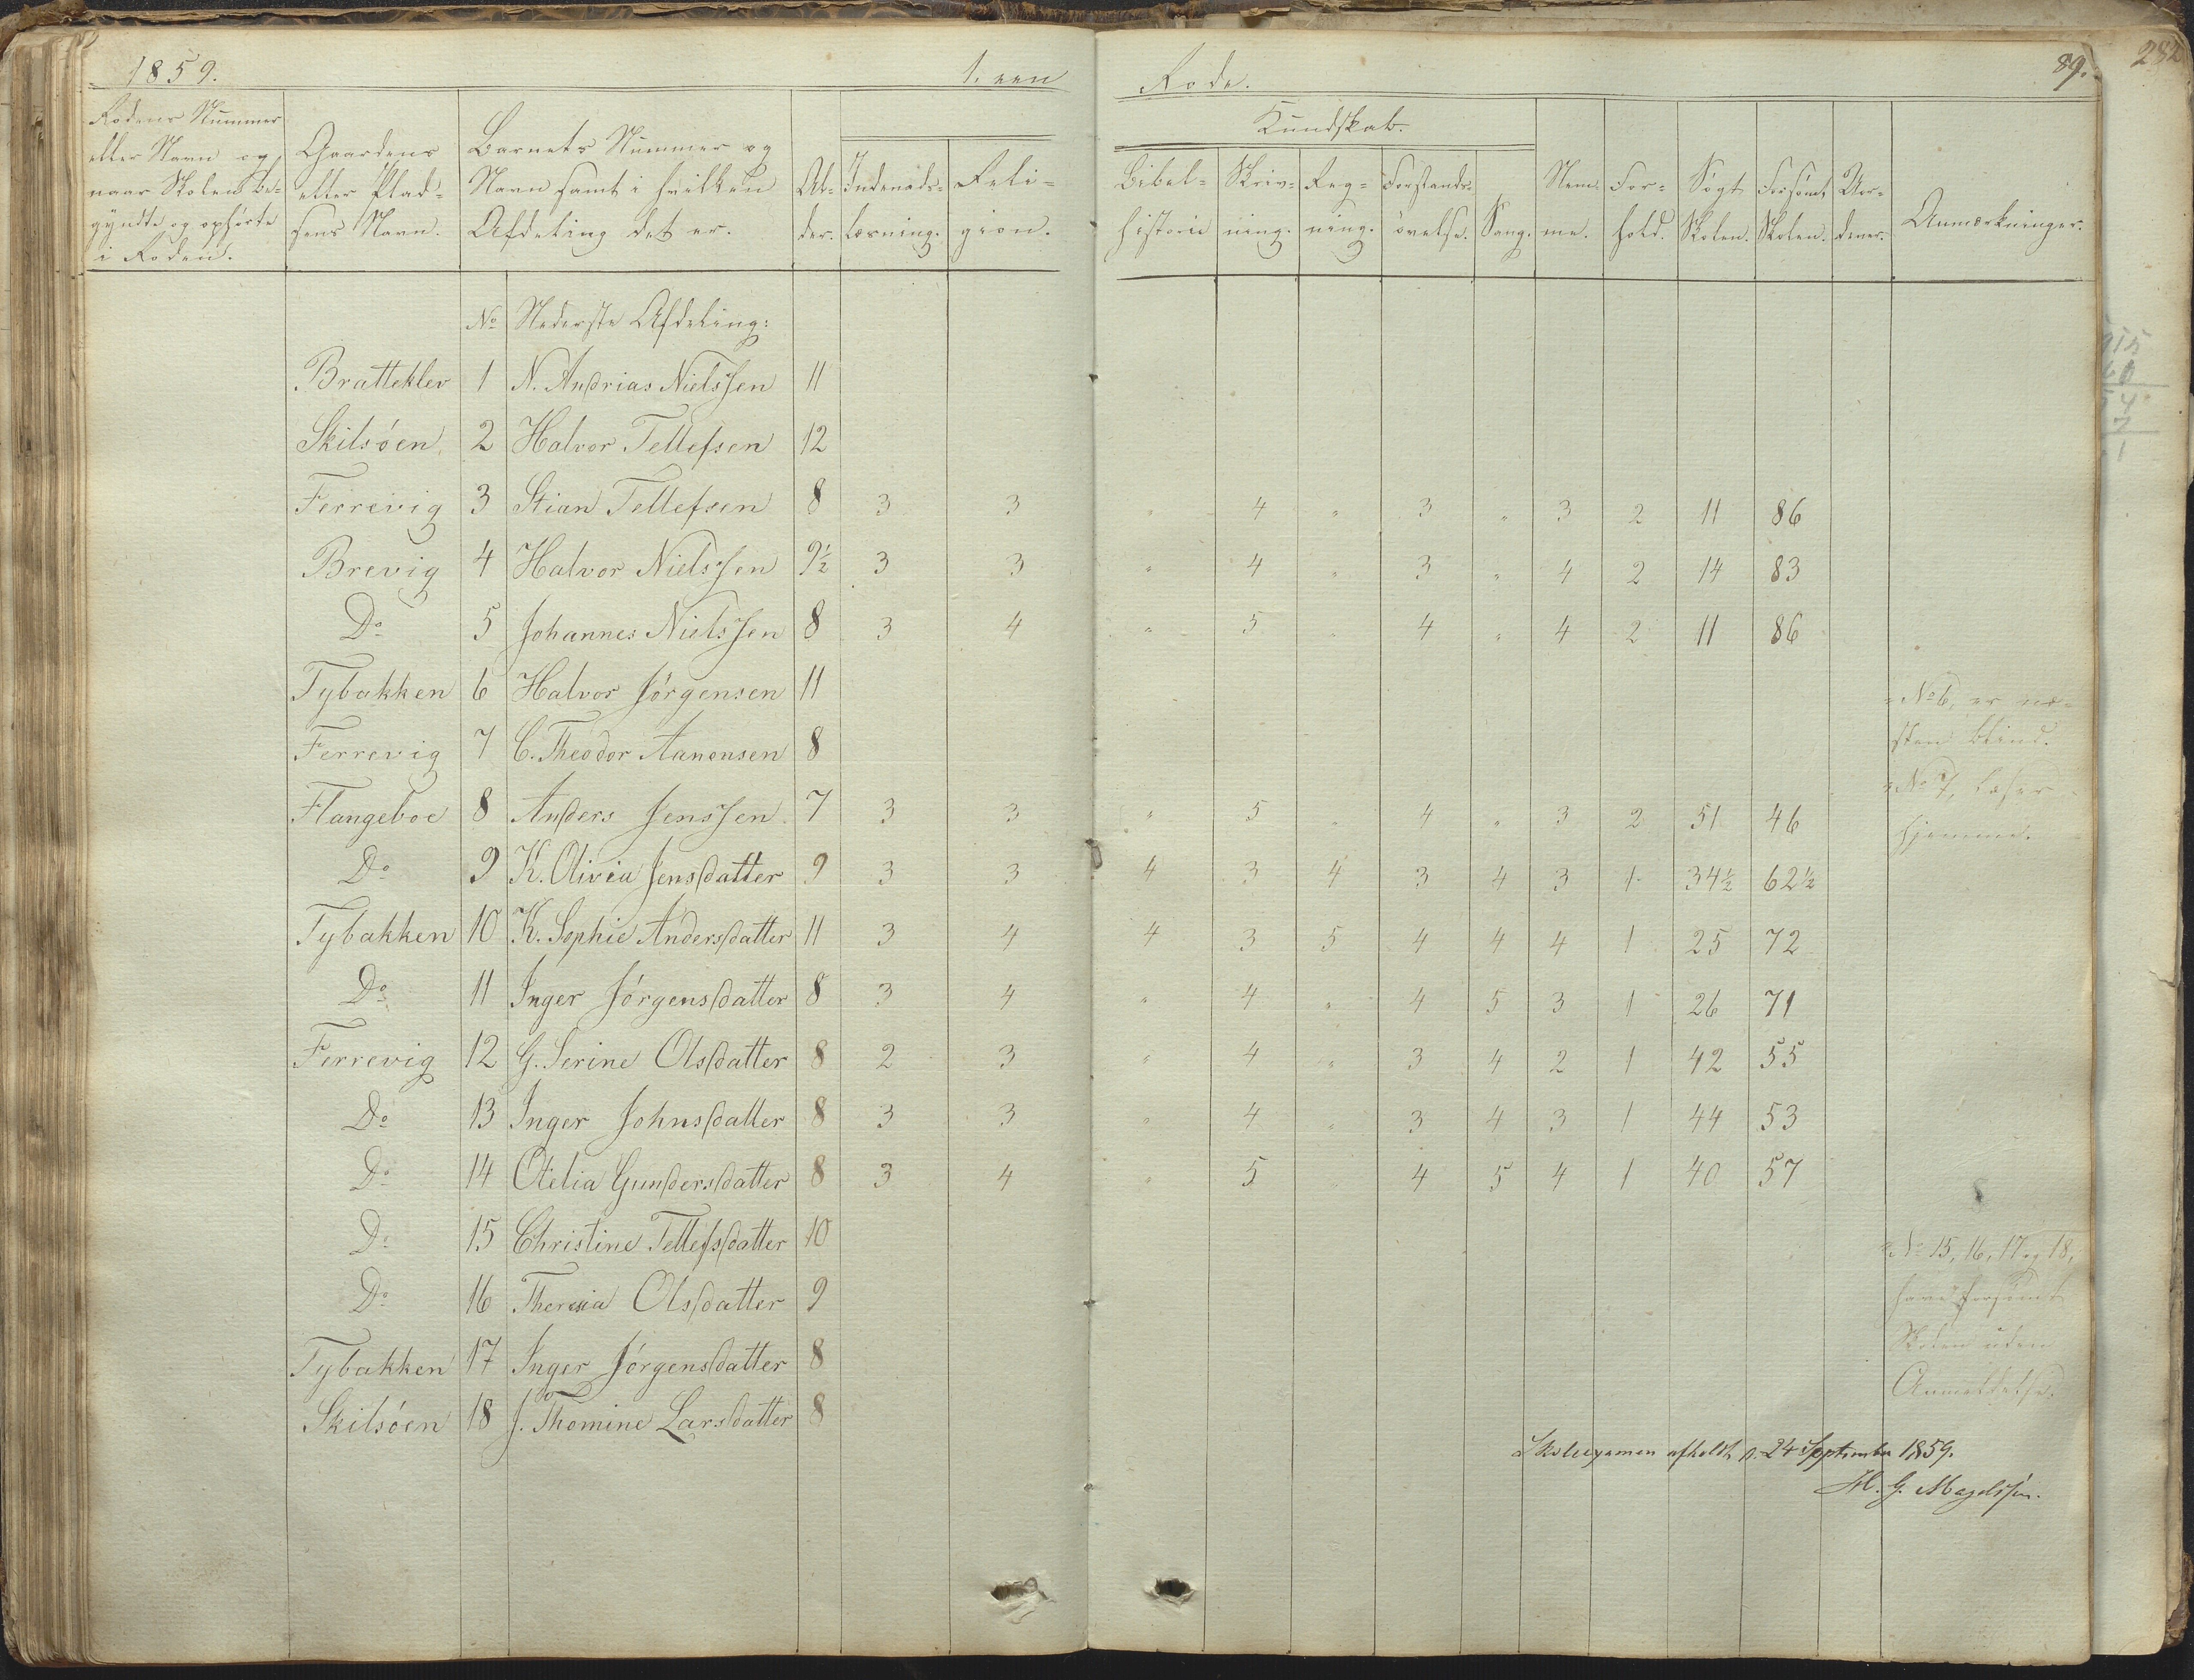 1859.
1. een
Rode.
89.
282
Rodens Nummer
eller Navn og
naar Skolen be-
gyndte og ophørte
i Roden.
Gaardens
eller Plad-
sens Navn.
Barnets Nummer og
Navn samt i hvilken
Afdeling det er.
Al-
der.
Indenads-
læsning.
Reli-
gion.
Kundskab.
Bibel-
historie
Skriv-
ning.
Reg-
ning.
Forstands-
øvelse.
Sang.
Nem-
me.
For-
hold.
Søgt
Skolen.
Forsømt
Skolen.
Uor-
dener.
Anmærkninger.
No Nederste Afdeling:
Bratteklev 1 N. Andrias Nielssen 11
Skilsöen 2 Halvor Tellefsen 12
Ferrevig 3 Stian Tellefsen 8 3 3 " 4 " 3 " 3 2 11 86
Brevig 4 Halvor Nielssen 9½ 3 3 " 4 " 3 " 4 2 14 83
Do 5 Johannes Nielssen 8 3 4 " 5 " 4 " 4 2 11 86
Tybakken 6 Halvor Jörgensen 11
No 6, er næ-
sten blind.
Ferrevig 7 C. Theodor Aanonsen 8
No 7, læser
hjemme.
Flangeboe 8 Anders Jenssen 7 3 3 " 5 " 4 " 3 2 51 46
Do 9 K. Olivia Jensdatter 9 3 3 4 3 4 3 4 3 1 34½ 62½
Tybakken 10 K. Sophie Andersdatter 11 3 4 4 3 5 4 4 4 1 25 72
Do 11 Inger Jörgensdatter 8 3 4 " 4 " 4 5 3 1 26 71
Ferrevig 12 G. Serine Olsdatter 8 2 3 " 4 " 3 4 2 1 42 55
Do 13 Inger Johnsdatter 8 3 3 " 4 " 3 4 3 1 44 53
Do 14 Otelia Gundersdatter 8 3 4 " 5 " 4 5 4 1 40 57
Do 15 Christine Tellefsdatter 10
No 15, 16, 17 og 18,
have forsømt
Skolen uden
Anmeldelse.
Do 16 Theresia Olsdatter 9
Tybakken 17 Inger Jörgensdatter 8
Skilsöen 18 J. Thomine Larsdatter 8
Skoleexamen afholdt d. 24 September 1859.
H. G. Magelssen.